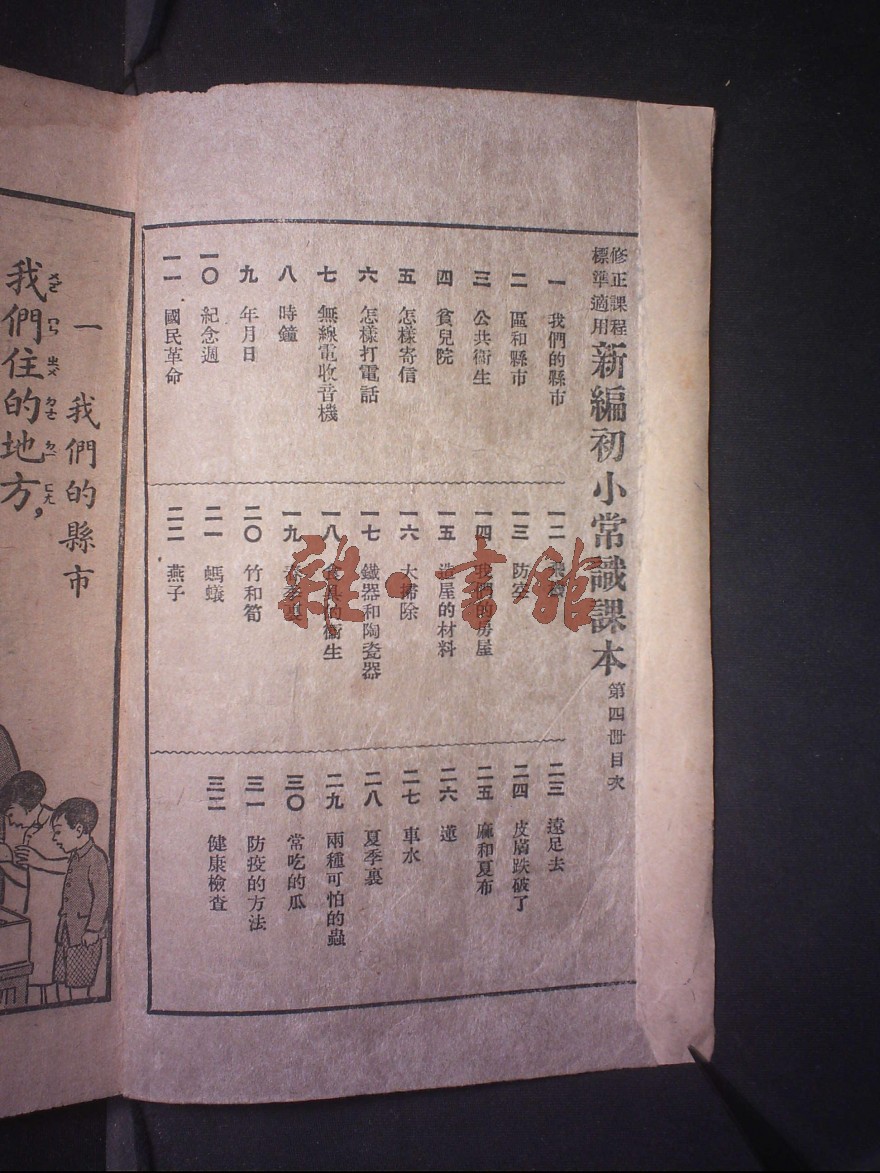 修正課程
標準適用
新編初小常識課本 第四冊目次
一 我們的縣市
二 區和縣市
三 公共衞生
四 貧兒院
五 怎樣寄信
六 怎樣打電話
七 無線電收音機
八 時鐘
九 年月日
一〇 紀念週
一一 國民革命
一二
一三 防空
一四 我們的房屋
一五 造屋的材料
一六 大掃除
一七 鐵器和陶瓷器
一八 食具的衞生
一九 春季裏
二〇 竹和筍
二一 螞蟻
二二 燕子
二三 遠足去
二四 皮膚跌破了
二五 麻和夏布
二六 蓮
二七 車水
二八 夏季裏
二九 兩種可怕的蟲
三〇 常吃的瓜
三一 防疫的方法
三二 健康檢查
雜·書館
一 我們的縣市
我們住的地方，